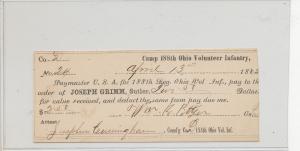 Co.
Camp 188th Ohio Volunteer Infantry,
April 13th 186
Paymaster U. S. A. for 188th Reg. Ohio Vol. Inf., pay to the
order of JOSEPH GRIMM, Sutler, Dollars,
for value received, and deduct the same from pay due me.
$
Attest:
Joseph Cunningham Comd'g Co. 188th Ohio Vol. Inf.